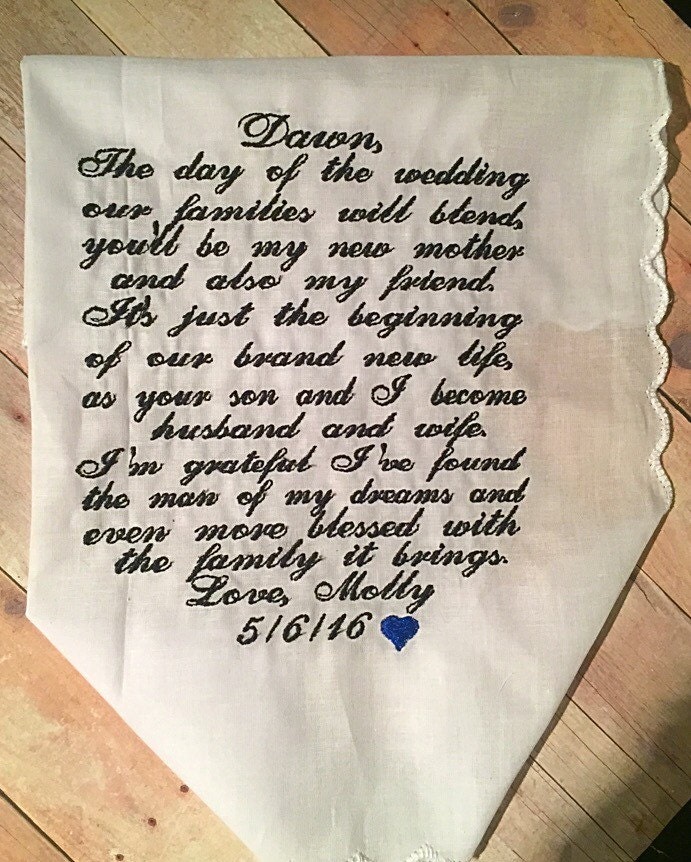 Dawn,
The day of the wedding
our families will blend,
you'll be my new mother
and also my friend.
It's just the beginning
of our brand new life,
as your son and I become
husband and wife.
I'm grateful I've found
the man of my dreams and
even more blessed with
the family it brings.
Love, Molly
5/6/16